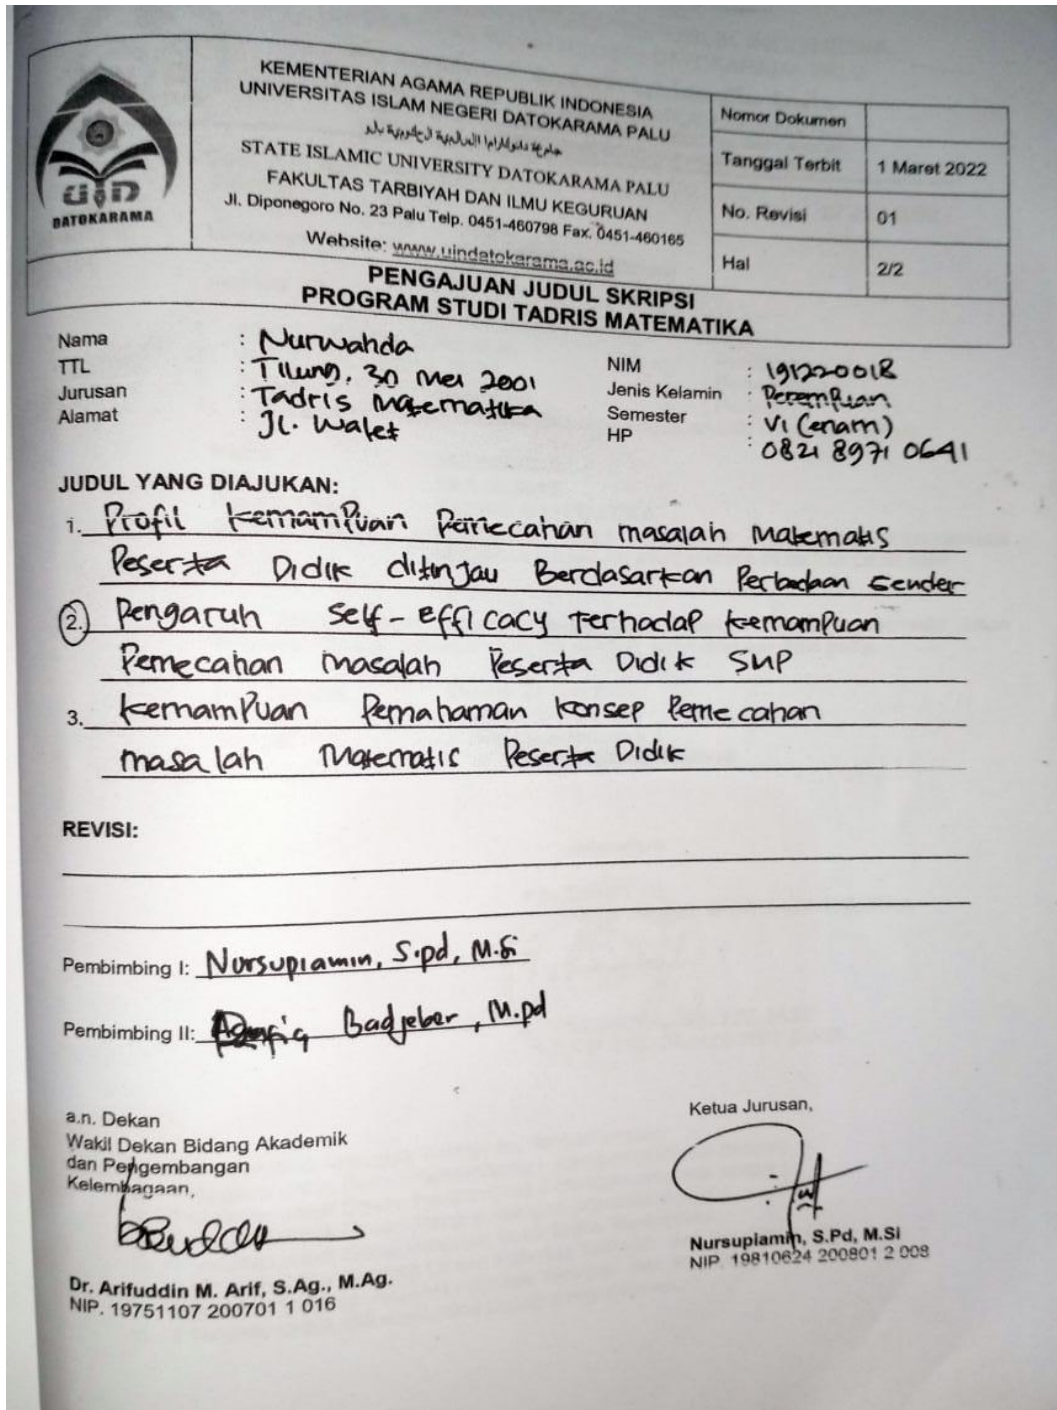 KEMENTERIAN AGAMA REPUBLIK INDONESIA
UNIVERSITAS ISLAM NEGERI DATOKARAMA PALU
STATE ISLAMIC UNIVERSITY DATOKARAMA PALU
FAKULTAS TARBIYAH DAN ILMU KEGURUAN
Jl. Diponegoro No. 23 Palu Telp. 0451-460798 Fax. 0451-460165
Website: www.uindatokarama.ac.id
UIN
DATOKARAMA
Nomor Dokumen
Tanggal Terbit 1 Maret 2022
No. Revisi 01
Hal 2/2
PENGAJUAN JUDUL SKRIPSI
PROGRAM STUDI TADRIS MATEMATIKA
Nama : Nurwahda
TTL : Tilung, 30 Mei 2001
Jurusan : Tadris Matematika
Alamat : Jl. Walet
NIM : 191220018
Jenis Kelamin : Perempuan
Semester : VI (enam)
HP : 0821 8971 0641
JUDUL YANG DIAJUKAN:
1. Profil Kemampuan Pemecahan masalah Matematis
Peserta Didik ditinjau Berdasarkan Perbedaan Gender
2. Pengaruh Self-Efficacy Terhadap Kemampuan
Pemecahan masalah Peserta Didik SMP
3. Kemampuan Pemahaman Konsep Pemecahan
masalah Matematis Peserta Didik
REVISI:
Pembimbing I: Nursupiamin, S.pd, M.Si
Pembimbing II: Badjeber, M.pd
a.n. Dekan
Wakil Dekan Bidang Akademik
dan Pengembangan
Kelembagaan,
Dr. Arifuddin M. Arif, S.Ag., M.Ag.
NIP. 19751107 200701 1 016
Ketua Jurusan,
Nursupiamin, S.Pd, M.Si
NIP. 19810624 200801 2 008